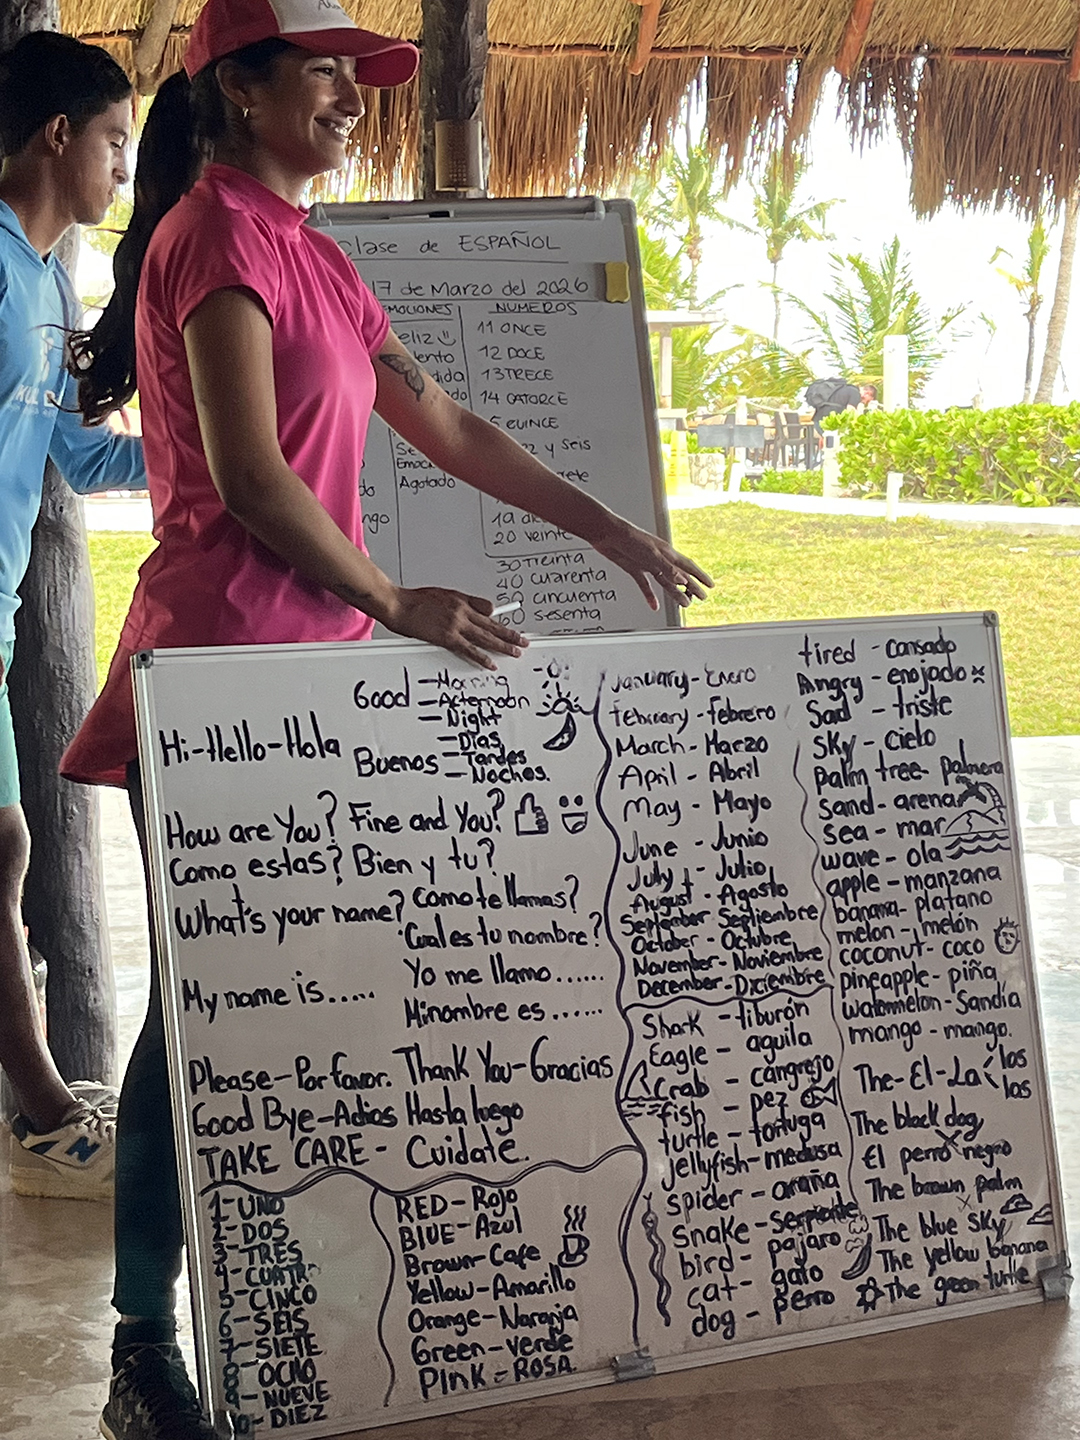 Clase de ESPAÑOL
17 de Marzo del 2026
NUMEROS
11 ONCE
12 DOCE
13 TRECE
14 CATORCE
y seis
20 veinte
30 Treinta
40 cuarenta
50 cincuenta
60 sesenta
Agotado
Hi-Hello-Hola
Good - Morning
- Afternoon
- Night
Buenos - Dias
- Tardes
- Noches.
How are You? Fine and You?
Como estas? Bien y tu?
What's your name? Como te llamas?
Cual es tu nombre?
My name is..... Yo me llamo......
Mi nombre es ......
Please-Por favor. Thank You-Gracias
Good Bye-Adios Hasta luego
TAKE CARE - Cuidate.
1-UNO
2-DOS
3-TRES
4-CUATR
5-CINCO
6-SEIS
7-SIETE
8-OCHO
9-NUEVE
10-DIEZ
RED-Rojo
BLUE-Azul
Brown-Cafe
Yellow-Amarillo
Orange-Naranja
Green-verde
PINK-ROSA.
January-Enero
february-febrero
March-Marzo
April-Abril
May-Mayo
June-Junio
July-Julio
August-Agosto
September-Septiembre
October-Octubre
November-Noviembre
December-Diciembre
Shark-tiburón
Eagle-aguila
Crab-cangrejo
fish-pez
turtle-tortuga
jellyfish-medusa
spider-araña
snake-serpiente
bird-pajaro
cat-gato
dog-perro
tired-cansado
Angry-enojado
Sad-triste
Sky-cielo
palm tree-palmera
Sand-arena
sea-mar
wave-ola
apple-manzana
banana-platano
melon-melón
coconut-coco
pineapple-piña
watermelon-Sandía
mango-mango.
The-El-La los
las
The black dog
El perro negro
The brown palm
The blue sky
The yellow banana
The green turtle